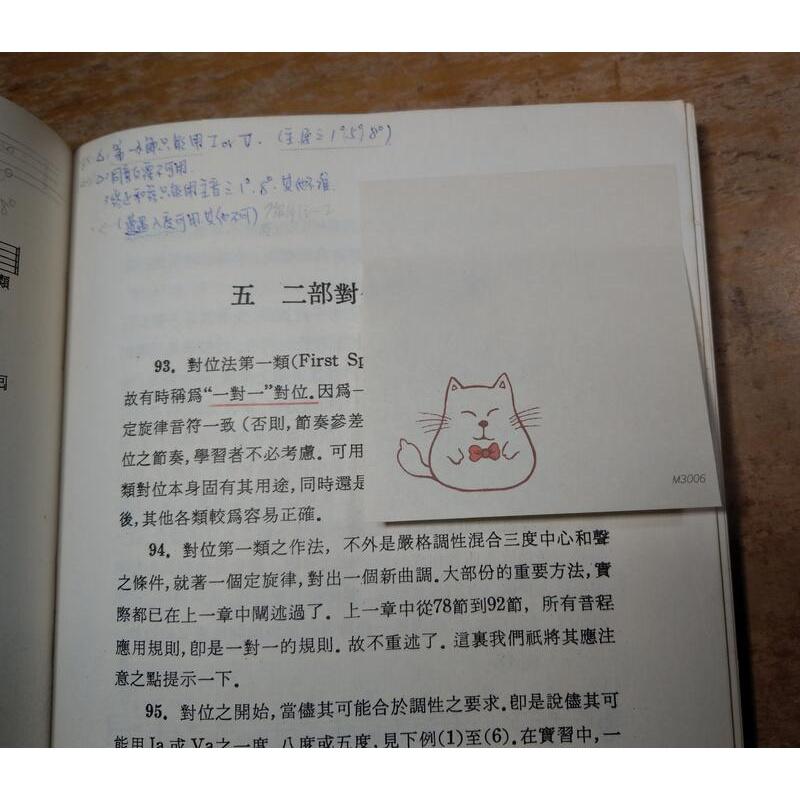 第一小節只能用 I or V. (主音之 1° 5° 8°)
同音
只能用主音之 1°. 8°. 其他不准
八度可用其他不可)
類
五 二部對
93. 對位法第一類(First Sp
故有時稱爲“一對一”對位.因爲一
定旋律音符一致 (否則,節奏參差
位之節奏,學習者不必考慮. 可用
類對位本身固有其用途,同時還是
後,其他各類較爲容易正確.
M3006
94. 對位第一類之作法, 不外是嚴格調性混合三度中心和聲
之條件,就著一個定旋律,對出一個新曲調.大部份的重要方法,實
際都已在上一章中闡述過了. 上一章中從78節到92節, 所有音程
應用規則,卽是一對一的規則. 故不重述了. 這裏我們祇將其應注
意之點提示一下.
95. 對位之開始,當儘其可能合於調性之要求.卽是說儘其可
能用Ia 或 Va之一度, 八度或五度,見下例(1)至(6).在實習中,一